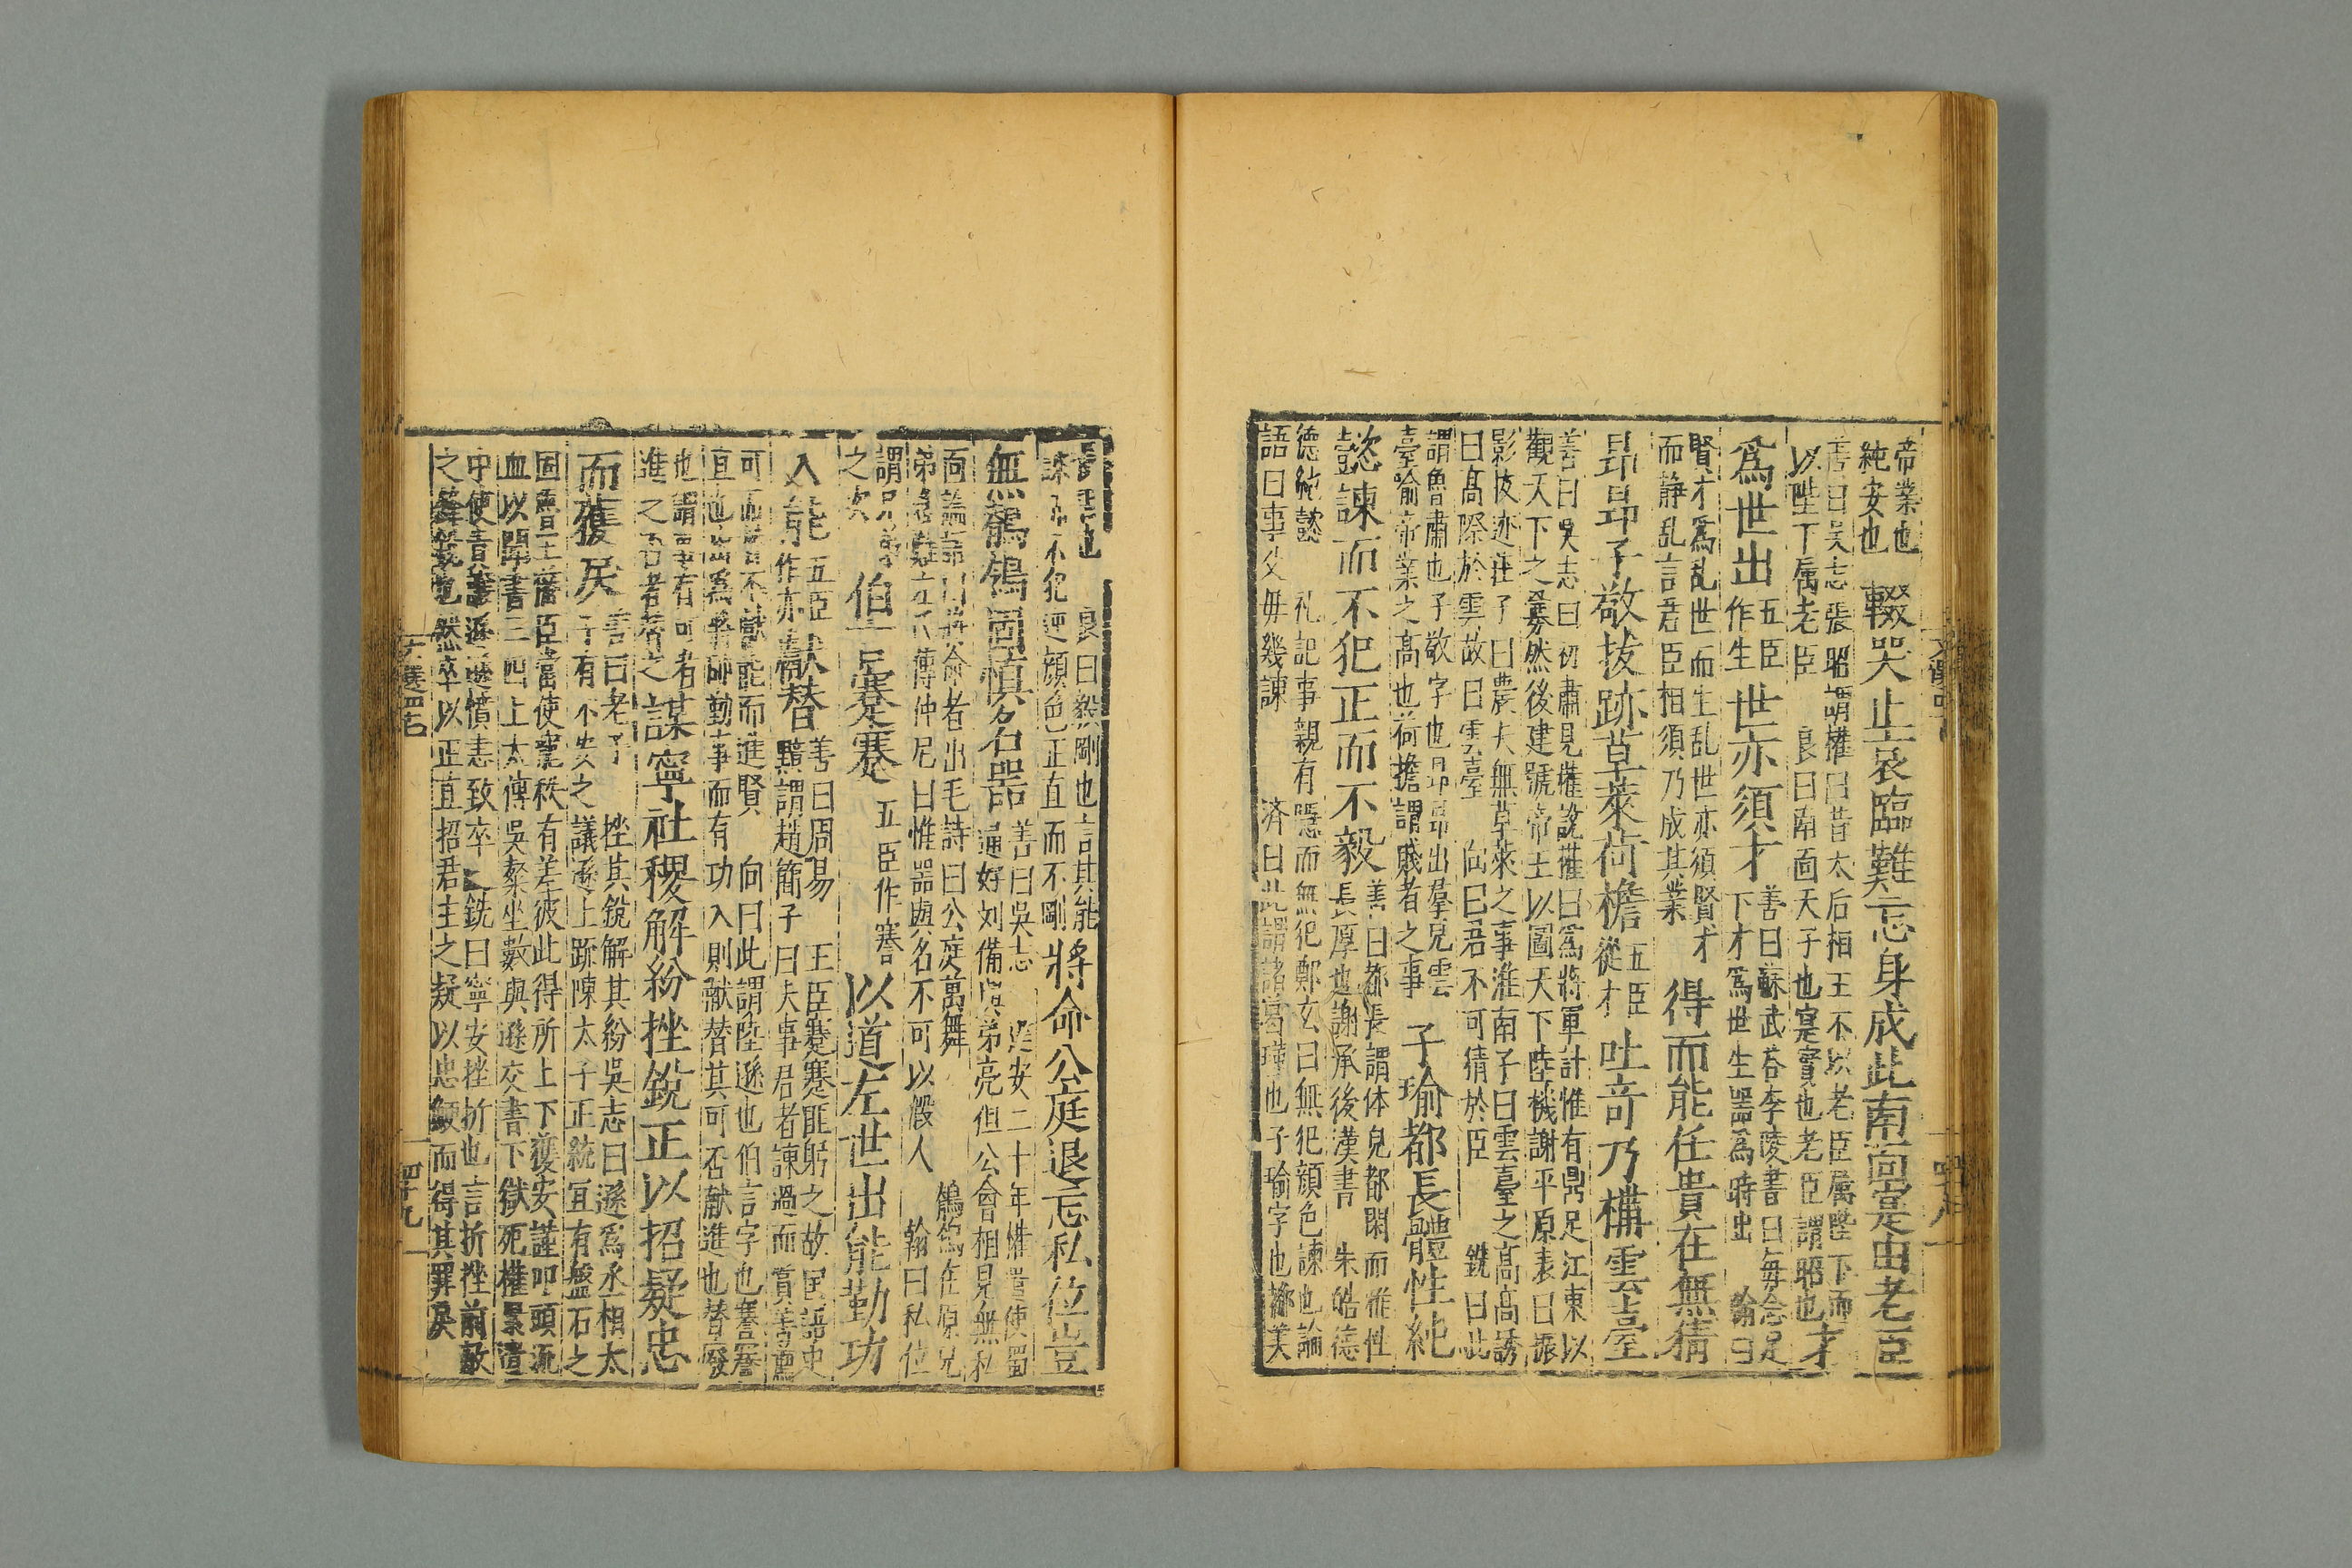 帝業也純安也 輟哭止哀臨難忘身成此南面寔由老臣
善曰吳志張昭謂權曰昔太后桓王不以老臣属陛下而
以陛下属老臣 良曰南面天子也寔實也老臣謂昭也 才
為世出五臣作生世亦須才善曰蘇武荅李陵書曰每念足
下才為世生器為時出 翰曰
賢才為乱世而生乱世亦須賢才
而静乱言君臣相須乃成其業 得而能任貴在無猜
昂昂子敬拔跡草萊荷檐五臣從才吐奇乃構雲臺
善曰吳志曰初肅見權說權曰為將軍計惟有鼎足江東以
觀天下之釁然後建號帝王以圖天下陸機謝平原表曰振
影拔迹莊子曰農夫無草萊之事淮南子曰雲臺之高高誘
曰高際於雲故曰雲臺 向曰君不可猜於臣 銑曰此
謂魯肅也子敬字也昂昂出羣皃雲
臺喻帝業之高也荷擔謂賤者之事 子瑜都長體性純
懿諫而不犯正而不毅善曰都長謂体皃都閑而雅性
長厚也謝承後漢書 朱皓德
德純懿 礼記事親有隱而無犯鄭玄曰無犯顔色諫也論
語曰事父毋幾諫 済曰此謂諸葛瑾也子瑜字也都美
良曰毅剛也言其能
諫 不犯逆顔色正直而不剛 將命公庭退忘私位豈
無鶺鴒固慎名器善曰吳志 建安二十年權遣使蜀
通好刘備與弟亮但公會相見無私
面論語曰將命者出毛詩曰公庭萬舞 鶺鴒在原兄
弟急難左氏傳仲尼曰惟器與名不可以假人 翰曰私位
謂兄弟之次 伯言蹇蹇五臣作謇以道左世出能勤功
入能五臣作亦獻替善曰周易 王臣蹇蹇匪躬之故国語史
黯謂趙簡子曰夫事君者諫過而賞善薦
可而替不献能而進賢 向曰此謂陸遜也伯言字也謇謇
直也出為將帥勤事而有功入則献替其可否献進也替廢
也謂事有可者
進之否者替之 謀寧社稷解紛挫銳正以招疑忠
而獲戾善曰老子 挫其銳解其紛吳志曰遜為丞相太
子有不安之議遜上跡陳太子正統宜有盤石之
固魯王藩臣當使寵秩有差彼此得所上下獲安謹叩頭流
血以聞書三四上太傅吳粲坐數與遜交書下獄死權累遣
中使責讓遜遜憤恚致卒 銑曰寧安挫折也言折挫前敵
之鋒銳也然卒以正直招君主之疑以忠鯁而得其罪戾
文選四七
四十九